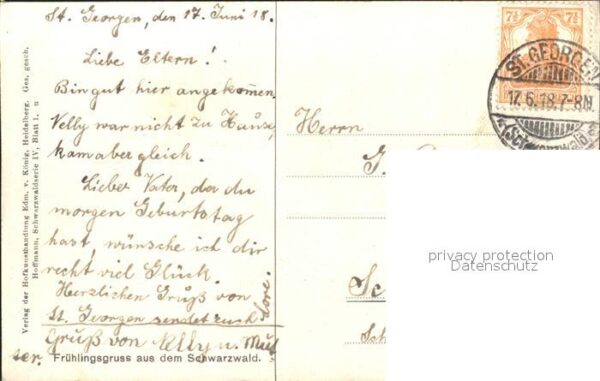 St. Georgen, den 17. Juni 18.
Liebe Eltern!
Bin gut hier angekom̅en.
Nelly war nicht zu Hause,
kam aber gleich.
Lieber Vater, da du
morgen Geburtstag
hast, wünsche ich dir
recht viel Glück.
Herzlichen Gruß von
St. Georgen sendet euch
Lore.
Gruß von Nelly u. Mut
ter.
Frühlingsgruss aus dem Schwarzwald.
Verlag der Hofkunsthandlung Edm. v. König, Heidelberg. Ges. gesch.
Hoffmann, Schwarzwaldserie IV, Blatt 1. n
7½ 7½
ST. GEORGEN
17.6.18.7-8N
Herrn
G.
Sc
Sch
privacy protection
Datenschutz